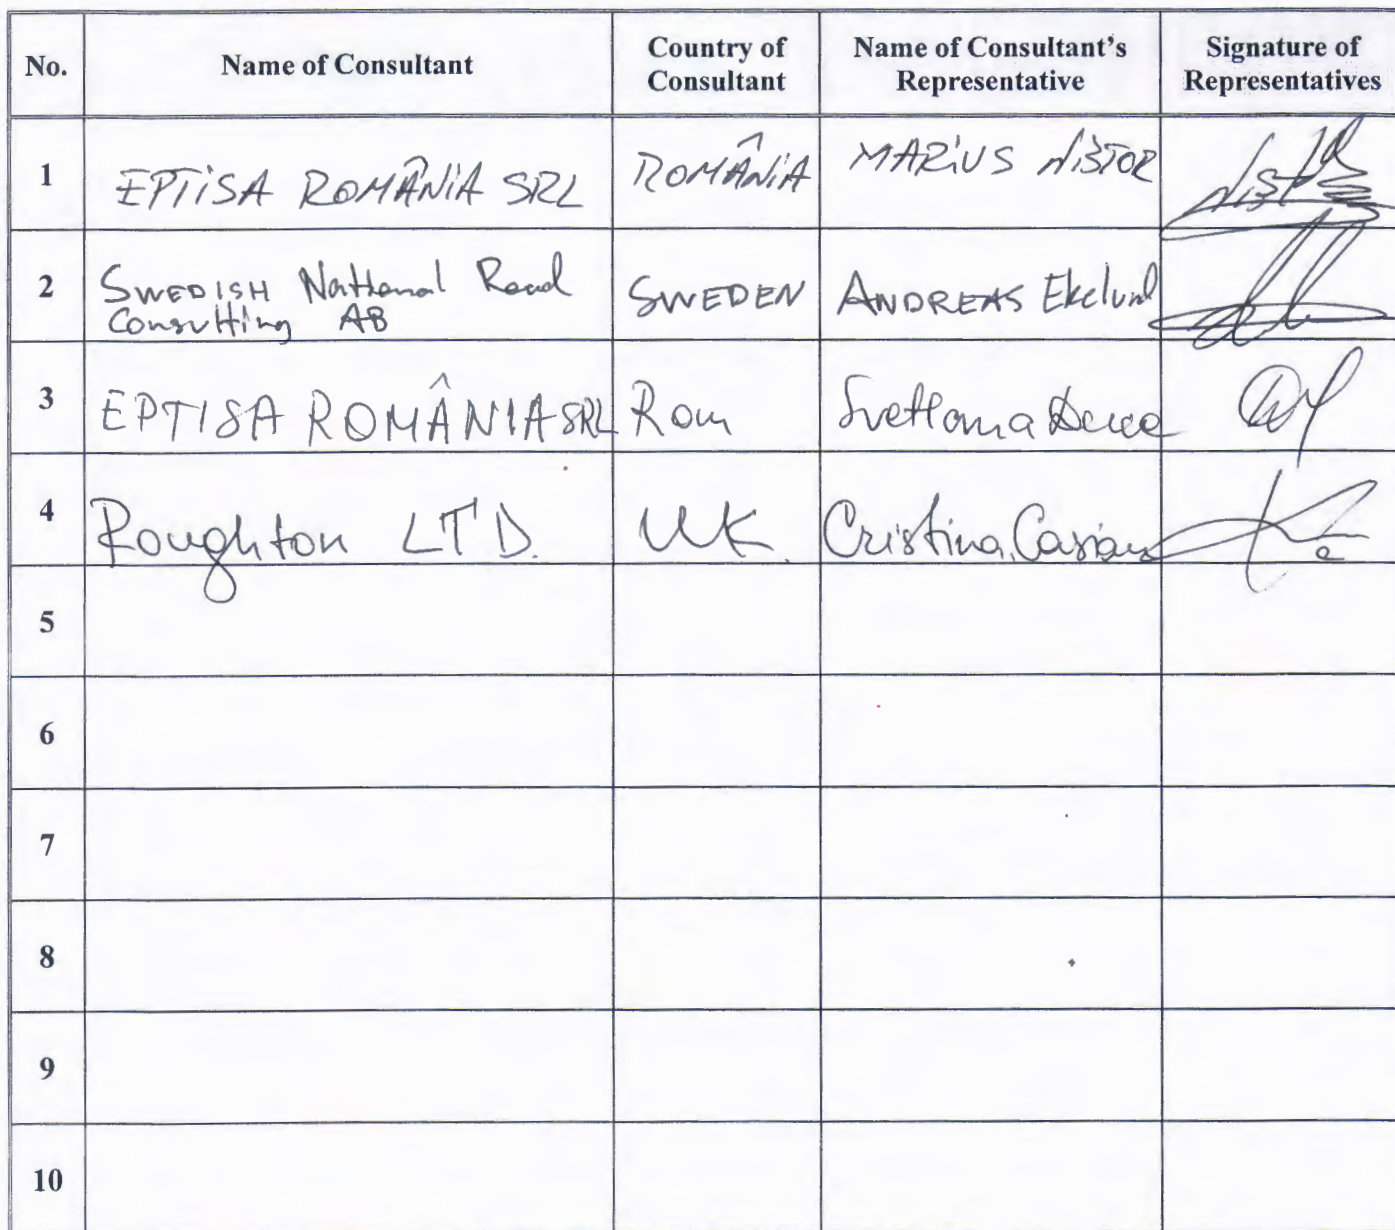 No. Name of Consultant Country of Consultant Name of Consultant's Representative Signature of Representatives
1 EPTiSA ROMÂNiA SRL ROMÂNiA MARiUS NiSTOR
2 SWEDISH National Road SWEDEN ANDREAS Ekelund
Consulting AB
3 EPTISA ROMÂNIA SRL Rom Svetlana
4 Roughton LTD. UK. Cristina Casian
5
6
7
8
9
10